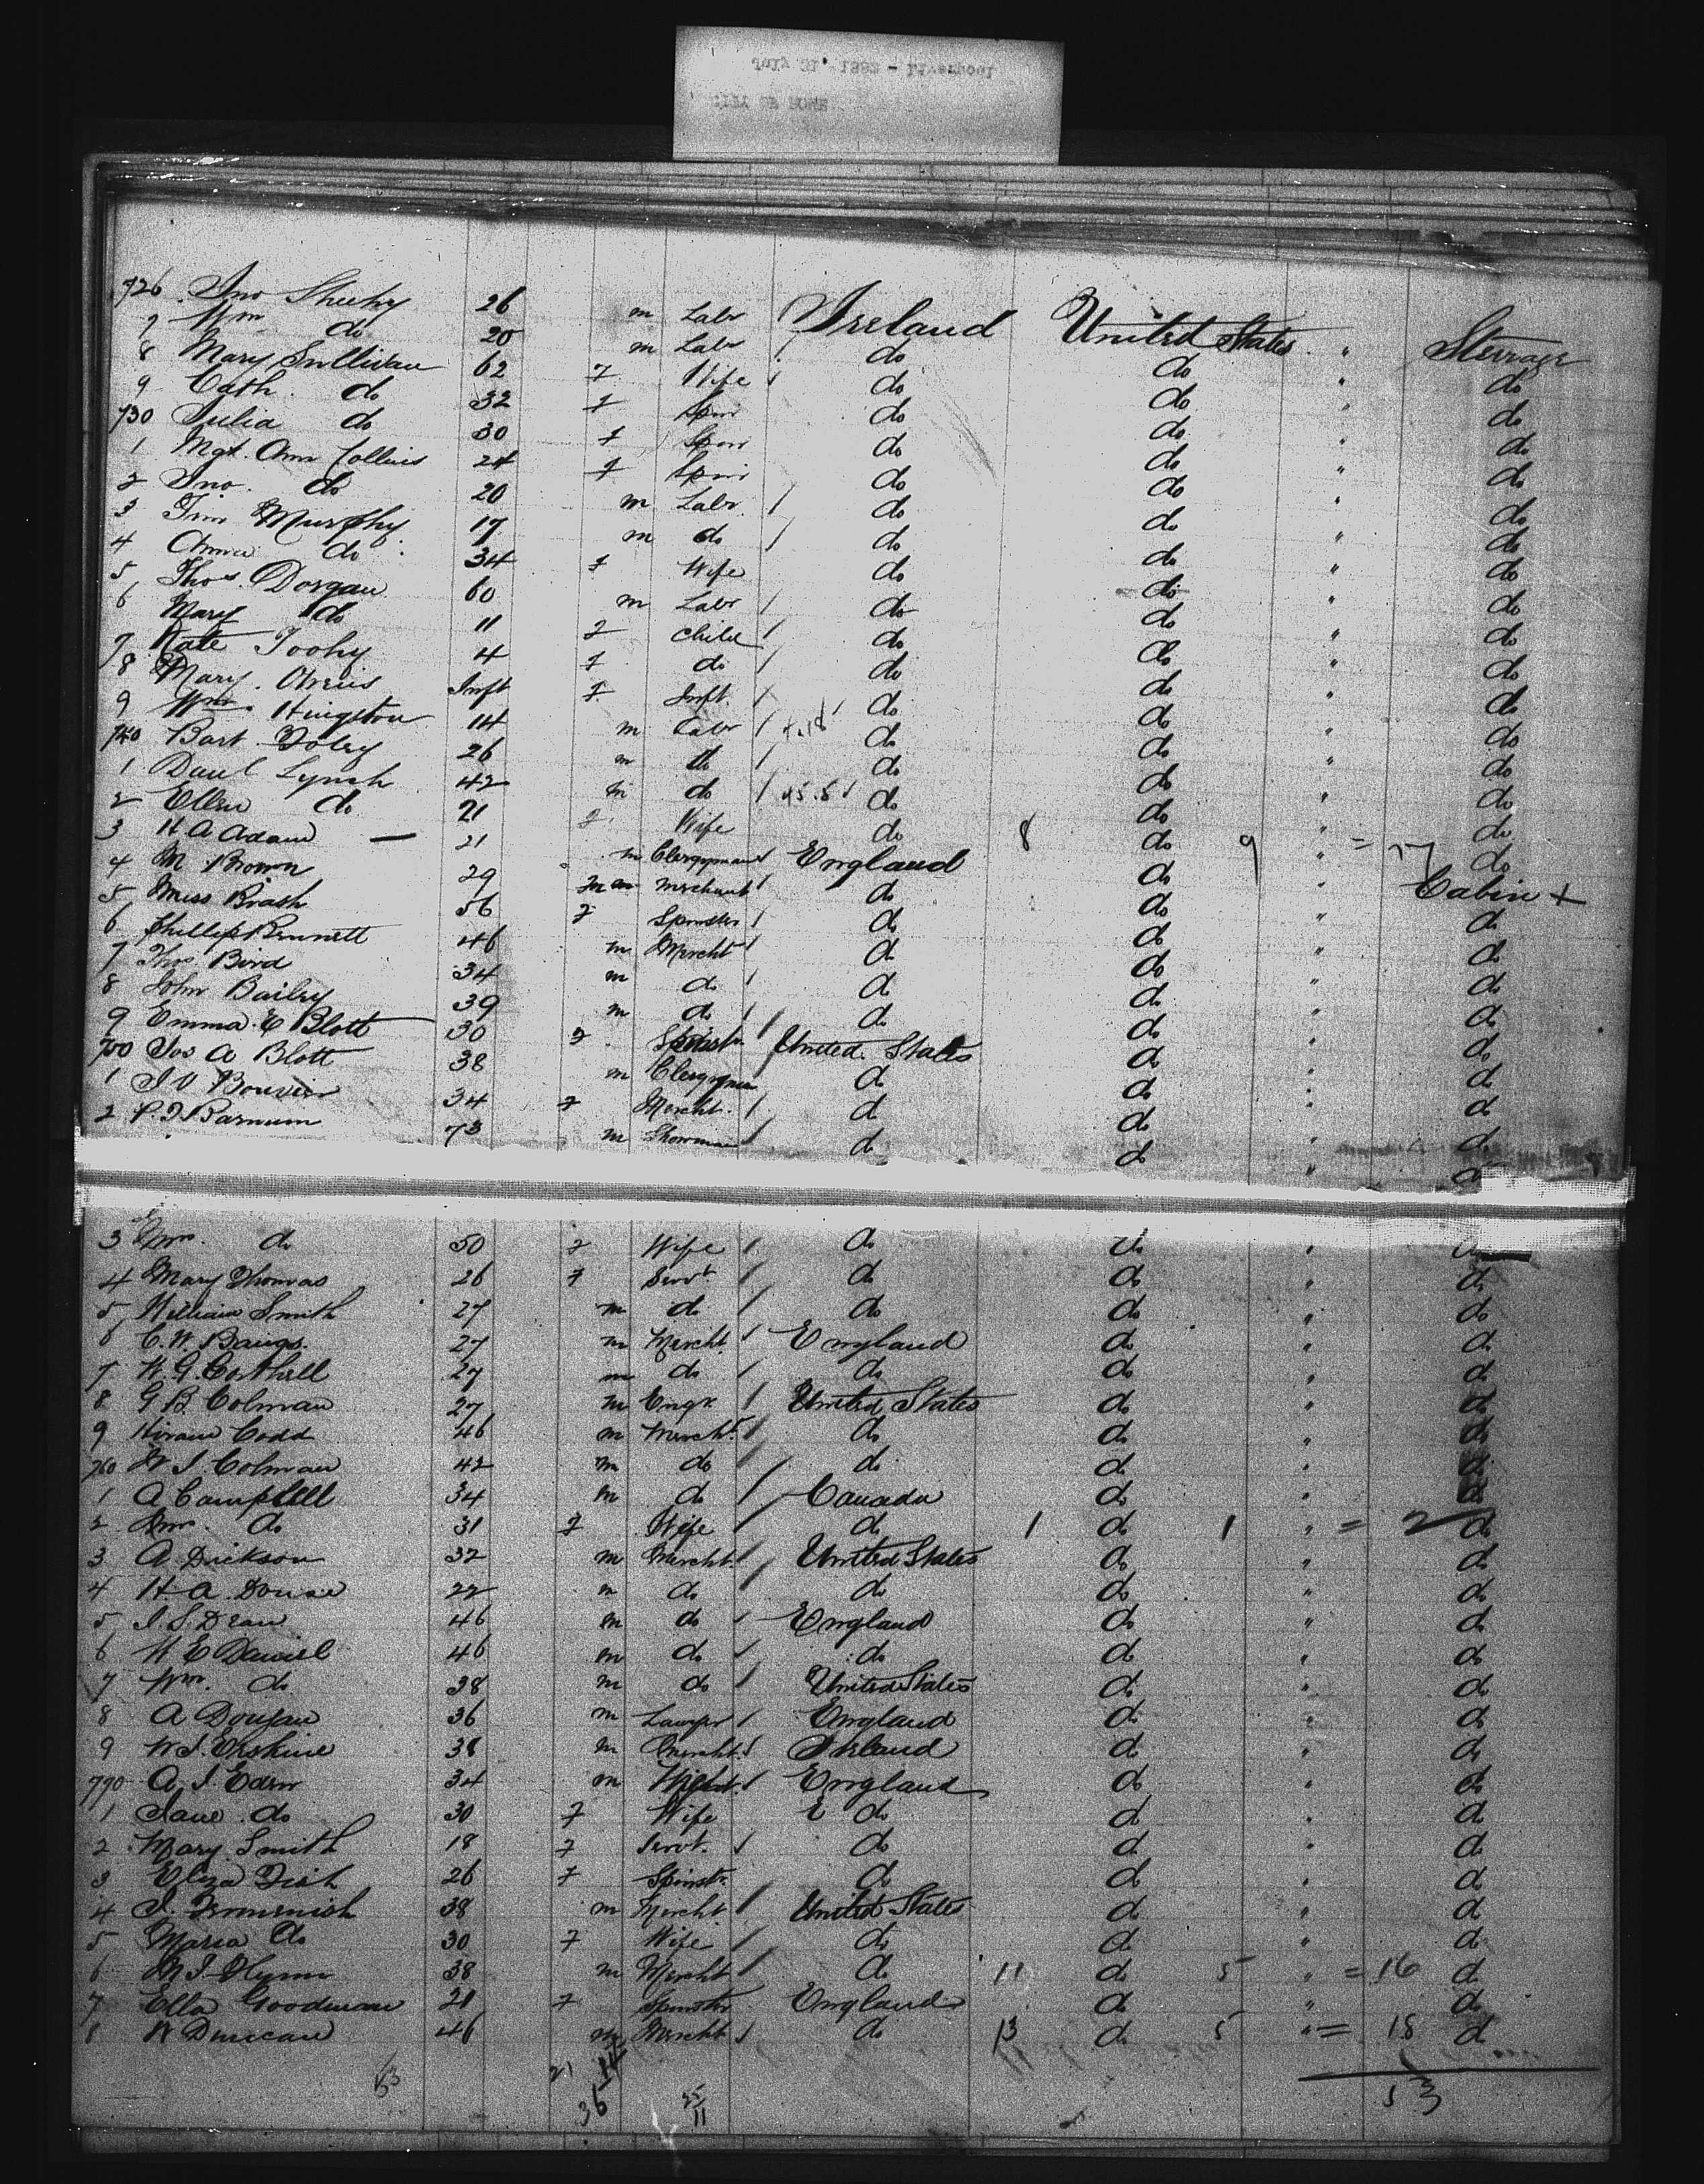 July 21, 1882 - Liverpool
CITY OF ROME
726 Jno Sheehy 26 m Labr Ireland United States " Steerage
7 Wm do 20 m Labr do do " do
8 Mary Sullivan 62 f Wife do do " do
9 Cath. do 32 f Spin do do " do
730 Julia do 30 f Spin do do " do
1 Mgt. Ann Collins 24 f Spin do do " do
2 Jno. do 20 m Labr. do do " do
3 Tim Murphy 17 m do do do " do
4 Anna do 34 f Wife do do " do
5 Thos. Dorgan 60 m Labr do do " do
6 Mary do 11 f Child do do " do
7 Kate Toohy 4 f do do do " do
8 Mary Inft f Inft. do do " do
9 Wm. Hingston 14 m Labr do do " do
740 Bart Foley 26 m do do do " do
1 Danl Lynch 42 m do do do " do
2 Ellen do 21 f Wife do 8 do 9 " = 17 do
3 H. A Adam — 21 m Clergyman England do " Cabin +
4 M. Brown 29 m Merchant do do " do
5 Miss Brash 56 f Spinster do do " do
6 Phillip Bennett 46 m Mercht do do " do
7 Thos Bird 34 m do do do " do
8 John Bailey 39 m do do do " do
9 Emma E Blott 30 f Spinstr United States do " do
750 Jos A Blott 38 m Clergyman do do " do
1 J V Bouvier 34 f Mercht. do do " do
2 P. T. Barnum 73 m Showman do do " do
3 Mrs. do 50 f Wife do do " do
4 Mary Thomas 26 f Servt do do " do
5 William Smith 27 m do do do " do
6 C. W. Bangs. 27 m Mercht England do " do
7 W. G. Corthell 27 m do do do " do
8 G B. Colman 27 m Engr. United States do " do
9 Hiram Codd 46 m Mercht. do do " do
760 W J. Colman 42 m do do do " do
1 A Campbell 34 m do Canada do " do
2 Mrs. do 31 f Wife do 1 do 1 " = 2 do
3 A. Dickson 32 m Mercht. United States do " do
4 H. A. Douse 22 m do do do " do
5 J. S. Drew 46 m do England do " do
6 W E Daniel 46 m do do do " do
7 Wm. do 38 m do United States do " do
8 A Dougan 36 m Lawyer England do " do
9 W J. Erskine 38 m Mercht. Ireland do " do
770 A. J. Eden 34 m England do " do
1 Jane do 30 f Wife E do do " do
2 Mary Smith 18 f Servt. do do " do
3 Eliza Fish 26 f Spinstr. do do " do
4 J. 38 m Mercht. United States do " do
5 Maria do 30 f Wife do do " do
6 M J. Flynn 38 m Mercht do 11 do 5 " = 16 do
7 Ella Goodman 21 f Spinster England do " do
8 W Duncan 46 m Mercht do 13 do 5 " = 18 do
53
21 14
35